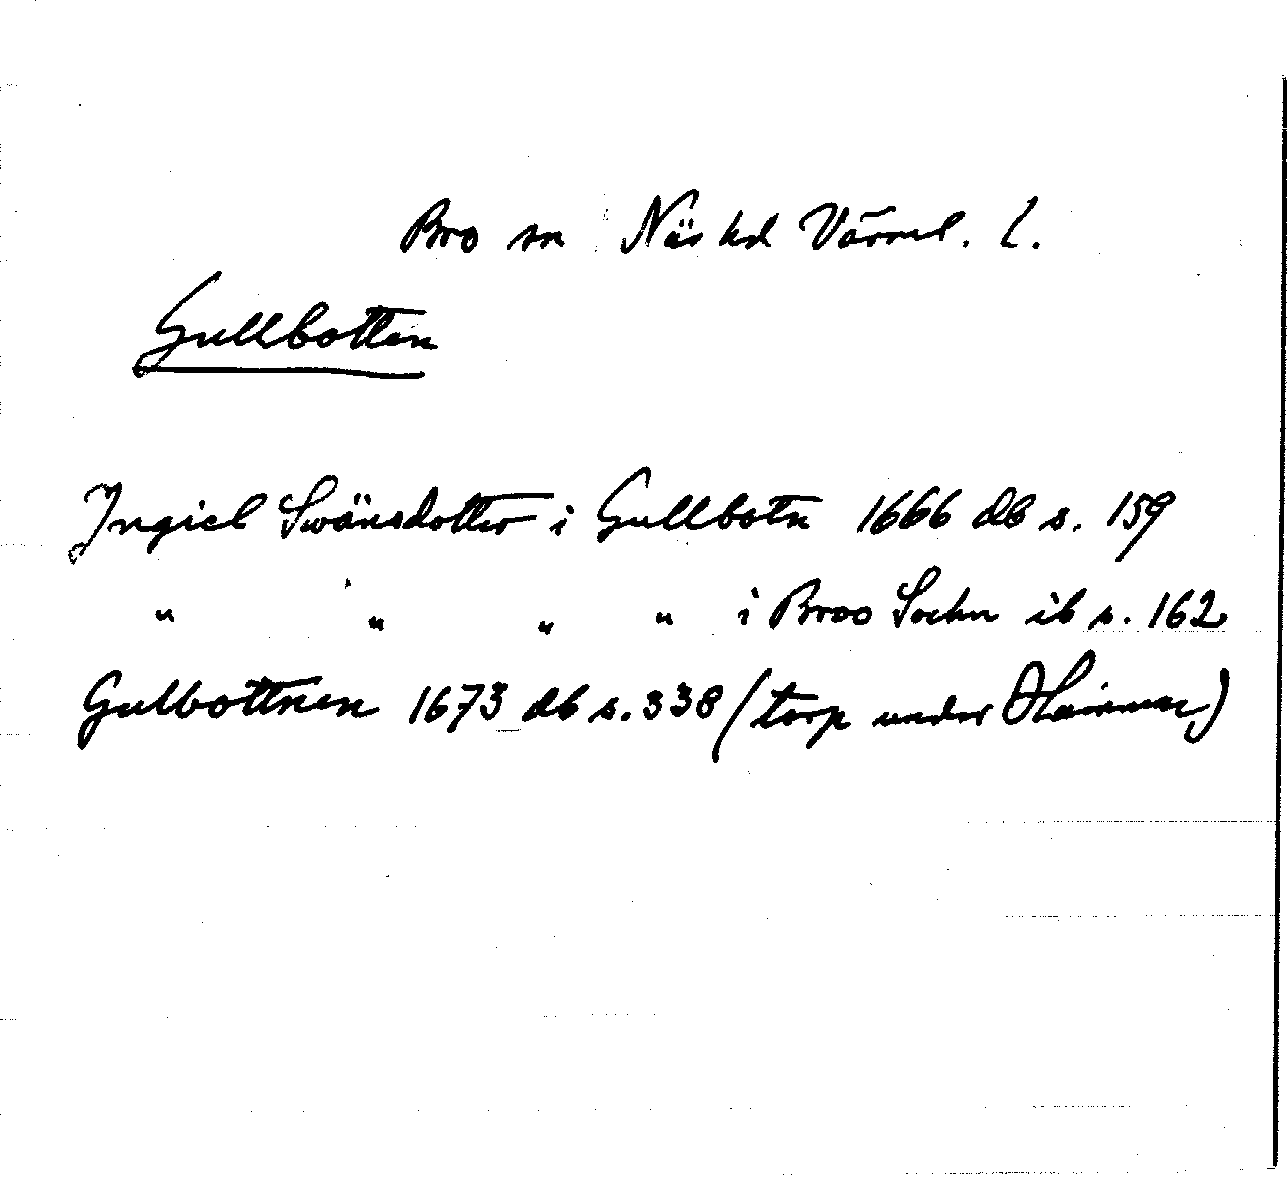 Bro sn Näs hd Värml. l.
Gullbotten
Ingiel Swänsdotter i Gullbotn 1666 db s. 159
" " " " i Broo Sochn ib s. 162
Gulbottnen 1673 db s. 338 (torp under